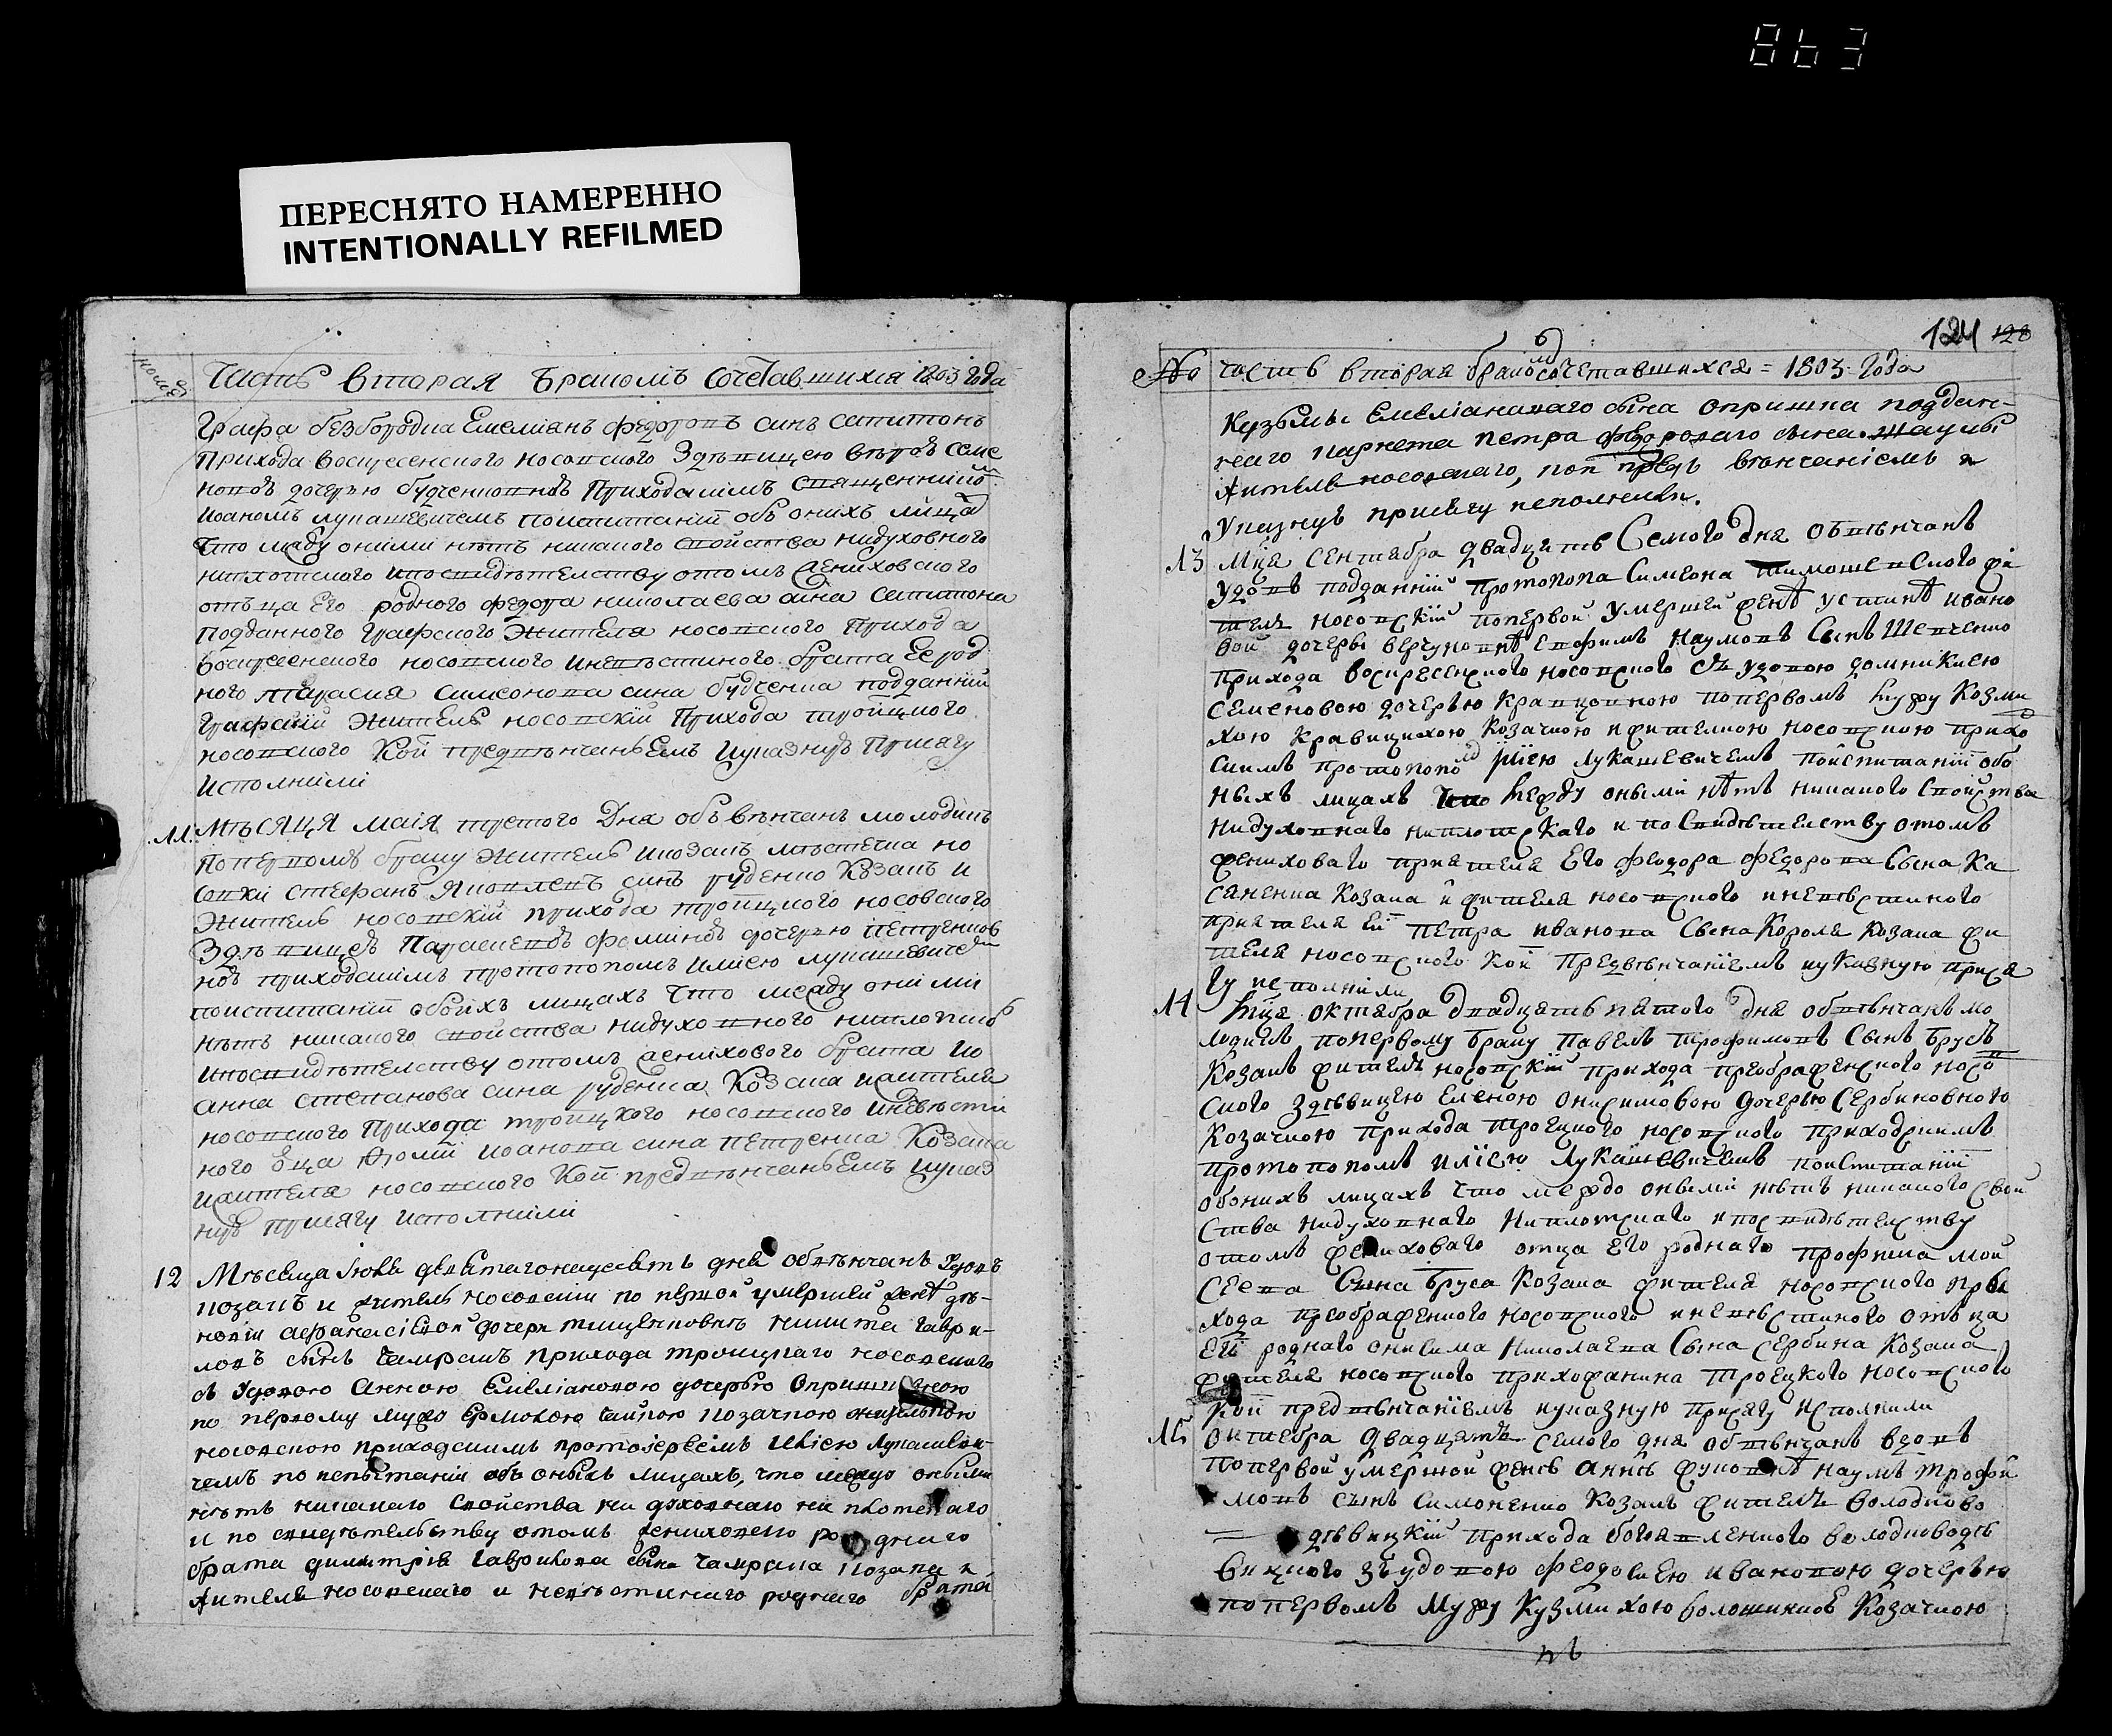 863
ПЕРЕСНЯТО НАМЕРЕННО
INTENTIONALLY REFILMED
Часть вторая Бракомъ сочетавшихся 1803 года
Графа безбородка Емелианъ федоровъ синъ
Прихода воскресенского носовского Здѣвицею
дочерью Приходскимъ священникомъ
Иоаномъ лукашевичемъ поиспитаниї объ онихъ лицахъ
Что между оними нѣтъ никакого свойства нидуховного
ниплотского ипосвидѣтелству отомъ жениховского
отъца Его родного федора николаева сина
подданного графского Жителя носовского Прихода
воскресенского носовского иневѣстиного брата Ее род
ного симеонова сина подданний
Графский Житель носовскїй Прихода тройцкого
носовского Кой предвѣнчаньЕмъ иуказную Присягу
исполнили
11. Мѣсяця маія третого Дня объвѣнчанъ молодикъ
поперъвому браку Житель икозакъ мѣстечка но
совки стефанъ Яковлевъ синъ руденко Козакъ и
Житель носовскїй прихода тройцкого носовского
Здѣвицею дочерью петренков
ною приходскимъ протопопомъ илиею лукашевичемъ
поиспитаниї обоихъ лицахъ Что между оними
нѣтъ никакого свойства нидуховного ниплотского
ипосвидѣтелству отомъ женихового брата ио
анна степанова сина руденка Козака ижителя
носовского Прихода тройцкого носовского иневѣсти
ного оца иоанова сина петренка Козака
ижителя носовского Кой предвѣнчаньЕмъ иуказ
ную присягу исполнили
12 Мѣсяца Июня девятагонадесять дня обвѣнчанъ Удовъ
козакъ и житель носовский по первой умершей женѣ
афанасіевой дочери никита гаври-
ловъ сынъ Чампалъ прихода троицкаго носовского
съ Удовою Анною Емелїановою дочерью
по первому мужу козачкою жительною
носовскою приходскимъ протоіереемъ Илїею Лукашеви-
чемъ по испытании объ оныхъ лицахъ, что между оными
нѣтъ никакаго свойства ни духовнаго ни плотскаго
и по свидѣтельству отомъ женихового роднаго
брата димитрія гаврилова сына козака и
жителя носовскаго и невѣстинаго роднаго брата
124 128
часть вторая бракомъ сочетавшихся = 1803 года
Кузьмы Емелїановаго сына опришка поддан-
наго петра федороваго сына
жителя носовскаго, кои предъ вѣнчаніемъ и
Указную присягу исполнили.
13 Мца Сентября Двадцять Семого дня обвѣнчанъ
Удовъ подданнїй Протопопа Симеона Тимошевского жи
тель носовскїй попервой умершей женѣ устинѣ ивано
вой дочеры Наумовъ Сынъ Шевченко
прихода воскресенского носовского съ удовою домникиею
Семеновою дочерью поперъвомъ мужу Козми
хою Кравцихою Козачкою ижителкою носовскою прихо
скимъ протопопомъ Илїею Лукашевичемъ поиспитанїй обо
ныхъ лицахъ Что между оными нѣтъ никакого свойства
нидуховнаго ниплотскаго и посвидѣтелству отомъ
жениховаго приятеля Его феодора федорова Сына Ка
саненка Козака и жителя носовского иневѣстиного
приятеля Ей петра иванова Сына Короля Козака жи
теля носовского Кои Предвѣнчанїемъ иуказную прися
гу исполнили
14 Мца октября двадцять пятого дня обвѣнчанъ мо
лодикъ поперъвому браку Павелъ Трофимовъ Сынъ Брусъ
Козакъ житель носовскїй прихода преображенского носов
ского здѣвицею Еленою онисимовою дочерью Сербиновною
Козачкою прихода Троецкого носовского приходскимъ
протопопомъ илїею Лукашевичемъ поиспитанїй
обонихъ лицахъ Что между оными нѣтъ никакого свой
ства нидуховнаго ниплотскаго ипосвидѣтелству
отомъ жениховаго отца Его роднаго трофима мой
сеева Сына Бруса Козака жителя носовского при
хода преображенного носовского иневѣстиного отъца
Ей роднаго онисима Николаева Сына Сербина Козака
жителя носовского прихожанина Троецкого носовского
Кои предвѣнчанїемъ иуказную присягу исполнили
15 Октября Двадцять семого дня обвѣнчанъ вдовъ
попервой умершой женѣ аннѣ наумъ трофи
мовъ сынъ Симоненко Козакъ житель володково
дѣвицкїй прихода богоявленного володководѣ
вицкого зъудовою феодосиею ивановою дочерью
поперъвомъ мужу Кузмихою Козачкою